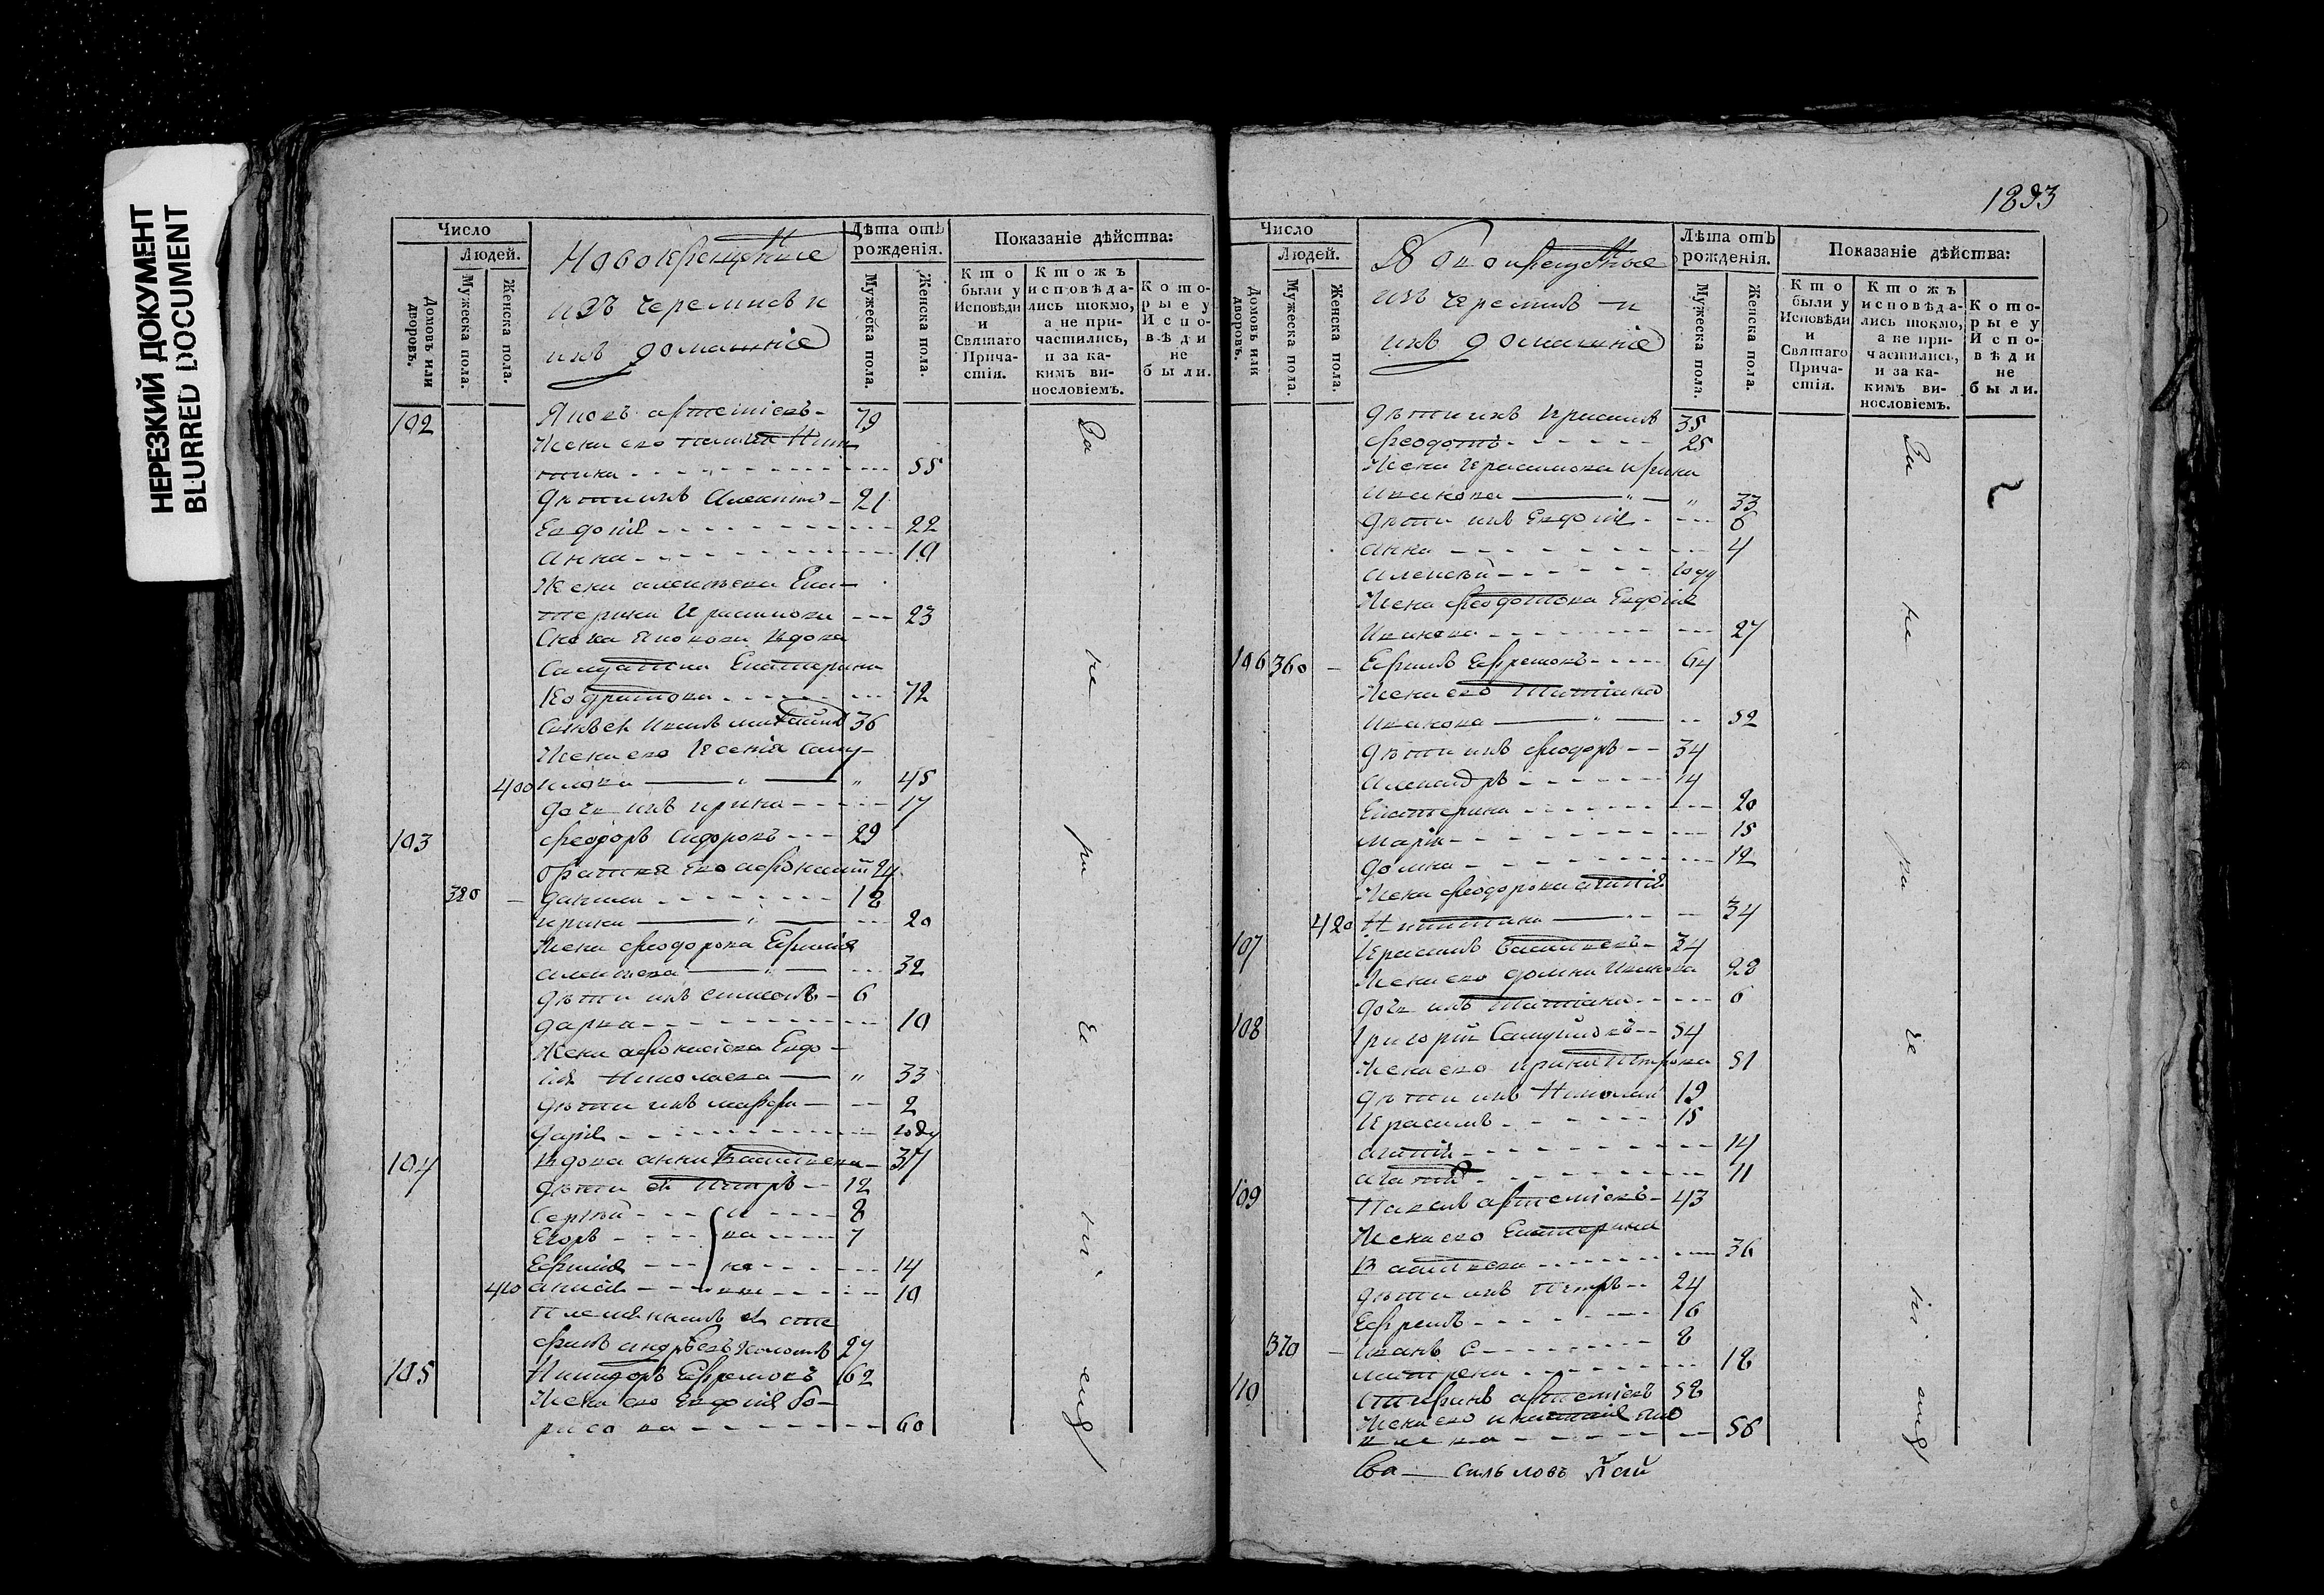 НЕРЕЗКИЙ ДОКУМЕНТ
BLURRED DOCUMENT
Число
Людей.
Домовъ или дворовъ.
Мужеска пола.
Женска пола.
Новокрещенные
изъ черемисъ и
ихъ домашніе
Лѣта отъ рожденія.
Мужеска пола.
Женска пола.
Показаніе дѣйства:
Кто были у Исповѣди и Святаго Причастія.
Ктожъ исповѣдались токмо, а не причастились, и за какимъ винословіемъ.
Которые у Исповѣди не были.
102 Яковъ Артемьевъ 79
Жена его
тина 55
Дѣти ихъ Алексѣй 21
Евдокія 22
Анна 10
Жена Алексѣева Ека-
терина Герасимова 23
Снова вдова
Салдатка Екатерина
Кодратова 72
Сынъ ея Иванъ 36
Жена его Ксенія Саму-
400 илова 45
Дочь ихъ Ирина 17
103 Феодоръ Сидоровъ 29
Братья Его Афонасій 24
320 Данила 18
Ирина 20
Жена Феодорова Ефимія
Алексѣева 32
Дѣти ихъ Симеонъ 6
Дарья 10
Жена Афонасіева Евдо-
кія Николаева 33
Дѣти ихъ Марфа 2
Дарія году
104 Вдова Анна Васильева 37
Дѣти ея Петръ 12
Сергѣй 8
Егоръ 7
Ефимія 14
410 Анисія 10
Племянникъ ея Сте
фанъ Андреевъ холостъ 27
105 Никифоръ Ефремовъ 62
Жена его Евдокія Бо-
рисова 60
За
не
ра
че
ні
емъ
1833
Число
Людей.
Домовъ или дворовъ.
Мужеска пола.
Женска пола.
Новокрещенные
изъ черемисъ и
ихъ домашніе
Лѣта отъ рожденія.
Мужеска пола.
Женска пола.
Показаніе дѣйства:
Кто были у Исповѣди и Святаго Причастія.
Ктожъ исповѣдались токмо, а не причастились, и за какимъ винословіемъ.
Которые у Исповѣди не были.
Дѣти ихъ Герасимъ 35
Феодотъ 25
Жена Герасимова Ирина
Иванова 33
Дѣти ихъ Евдокія 6
Анна 4
Алексѣй году
Жена Феодотова Евдокія
Иванова 27
106 360 Ефимъ Ефремовъ 64
Жена его Татіана
Иванова 52
Дѣти ихъ Феодоръ 34
Александръ 14
Екатерина 20
Марія 15
Домна 12
Жена Феодорова
420 Никитина 34
107 Герасимъ Васильевъ 34
Жена его Домна Иванова 28
Дочь ихъ Татіана 6
108 Григорій Самуиловъ 54
Жена его Ирина Петрова 51
Дѣти ихъ Николай 19
Герасимъ 15
14
11
109 Артемьевъ 43
Жена его Екатерина
Васильева 36
Дѣти ихъ Петръ 24
Ефремъ 16
370 Иванъ 8
Матрена 18
110 Стефанъ Артемьевъ 58
Жена его
56
За
не
ра
че
ні
емъ